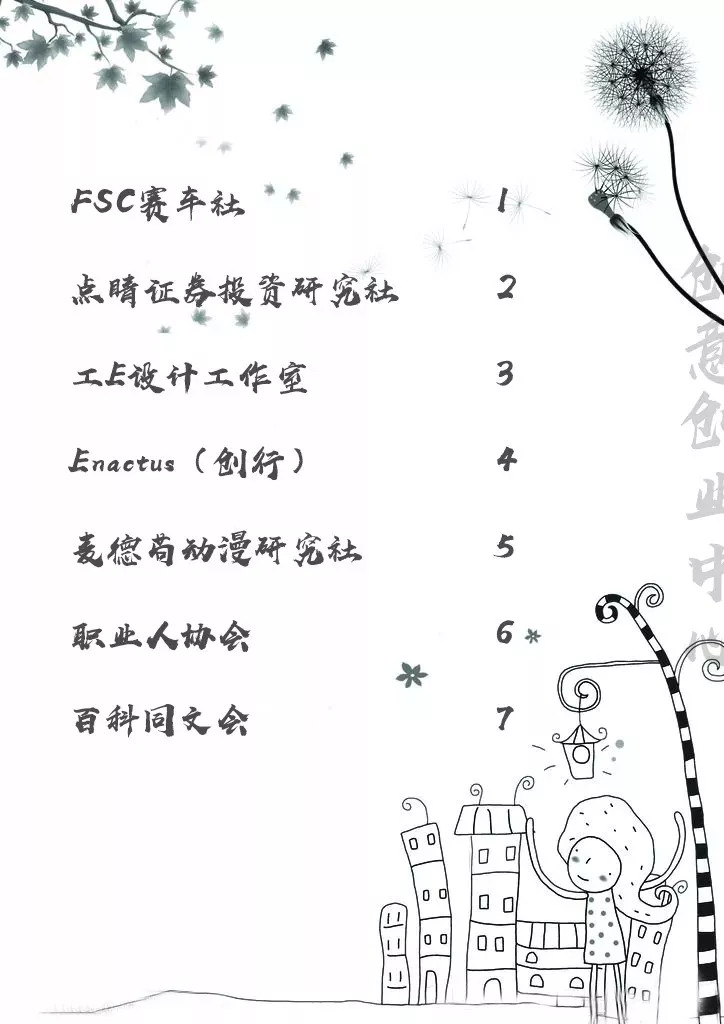 FSC赛车社 1
点睛证券投资研究社 2
工E设计工作室 3
Enactus（创行） 4
麦德苟动漫研究社 5
职业人协会 6
百科同文会 7
创意创业中心